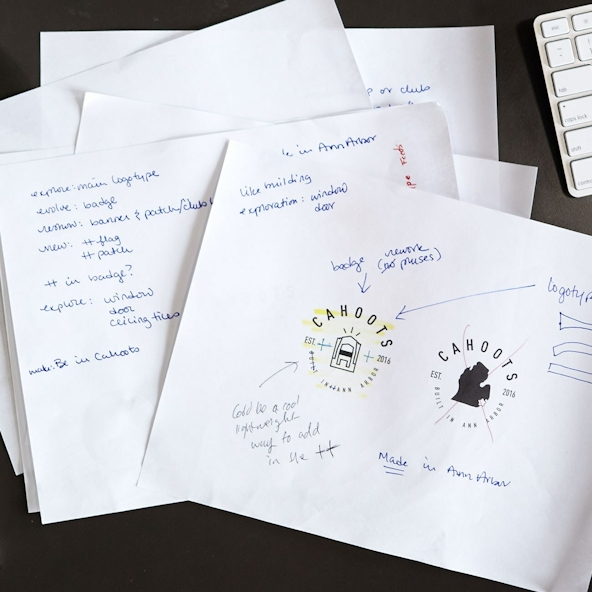 or clubs
in Ann Arbor
explore: main logotype
evolve: badge
banner & patch/clubs
new: # flag
# patch
# in badge?
explore: window
door
ceiling tiles
Be in Cahoots
like building
exploration: window
door
badge rework
(no pluses)
logotype
CAHOOTS
EST. 2016
IN ANN ARBOR
CAHOOTS
EST. 2016
BUILT IN ANN ARBOR
Could be a cool
lightweight
way to add
in the #
Made in Ann Arbor
tab
caps lock
shift
control